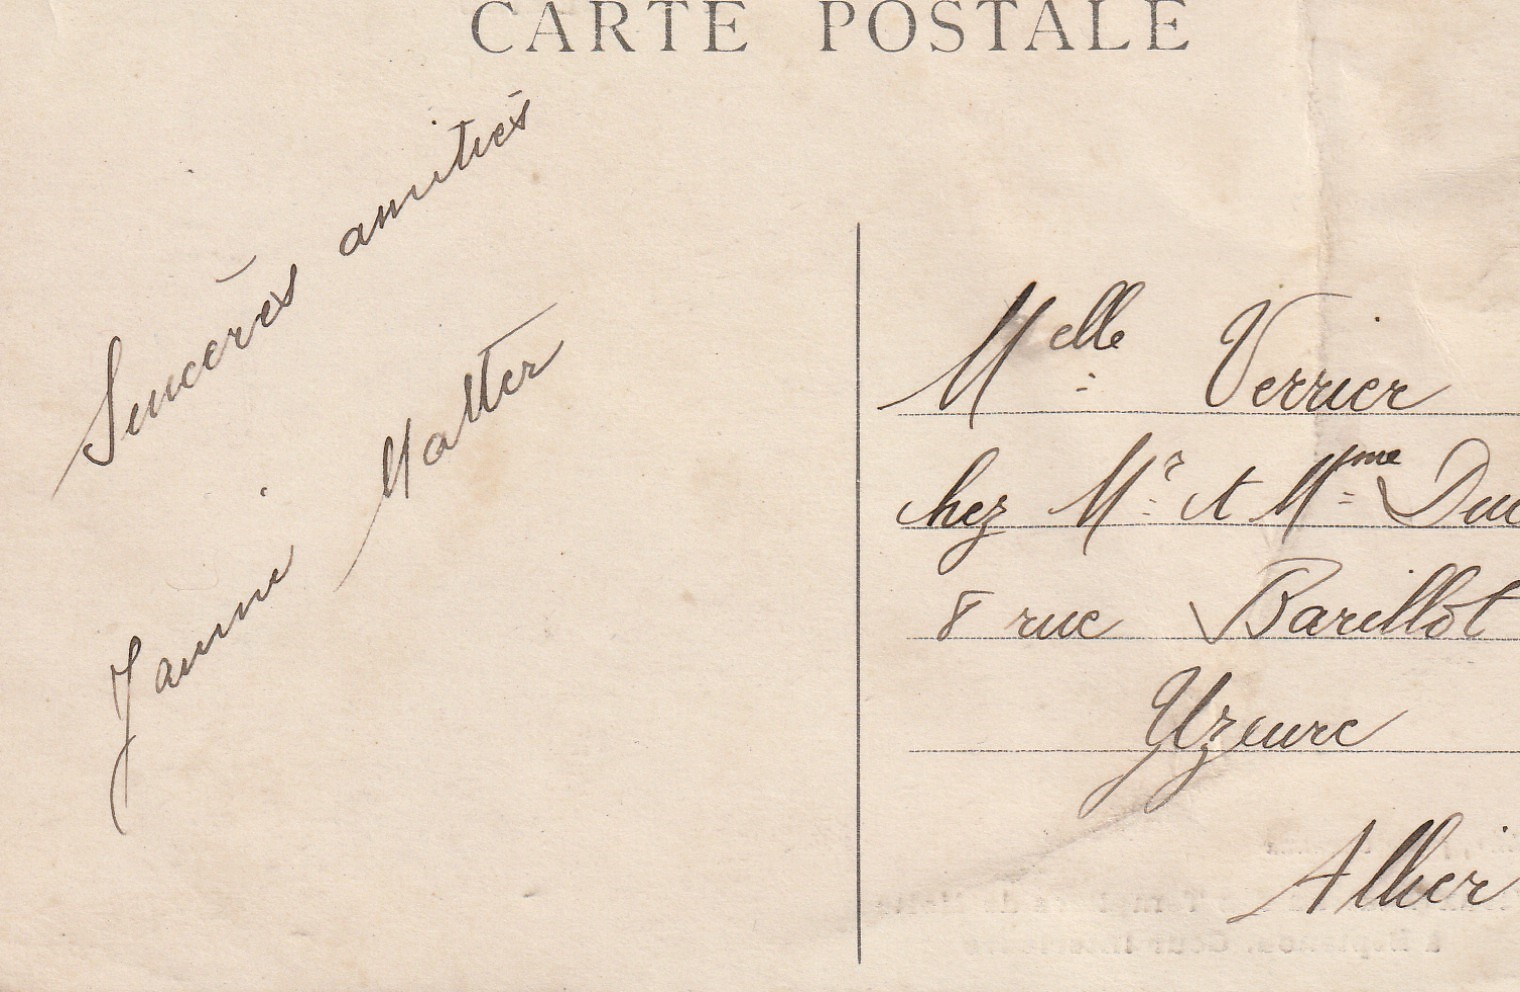 CARTE POSTALE
Sincères amitiés
Jannie Matter
Melle Verrier
chez Mr et Mme Duc
8 rue Barillot
Yzeure
Allier